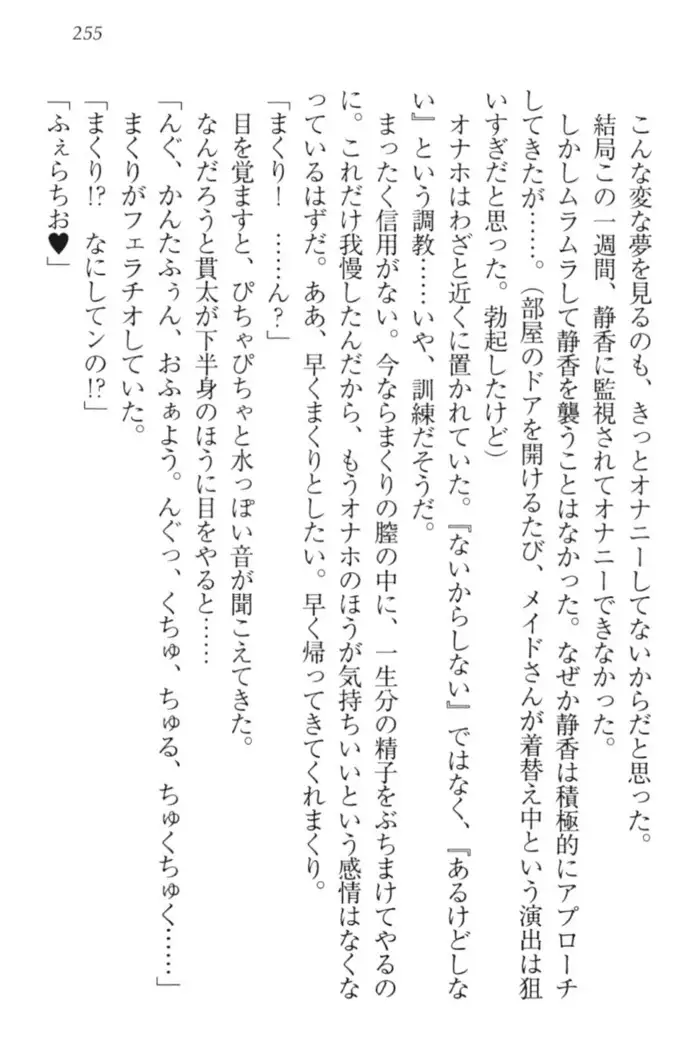 255
こんな変な夢を見るのも、きっとオナニーしてないからだと思った。
結局この一週間、静香に監視されてオナニーできなかった。
しかしムラムラして静香を襲うことはなかった。なぜか静香は積極的にアプローチ
してきたが……。（部屋のドアを開けるたび、メイドさんが着替え中という演出は狙
いすぎだと思った。勃起したけど）
オナホはわざと近くに置かれていた。『ないからしない』ではなく、『あるけどしな
い』という調教……いや、訓練だそうだ。
まったく信用がない。今ならまくりの膣の中に、一生分の精子をぶちまけてやるの
に。これだけ我慢したんだから、もうオナホのほうが気持ちいいという感情はなくな
っているはずだ。ああ、早くまくりとしたい。早く帰ってきてくれまくり。
「まくり！　……ん？」
目を覚ますと、ぴちゃぴちゃと水っぽい音が聞こえてきた。
なんだろうと貫太が下半身のほうに目をやると……
「んぐ、かんたふぅん、おふぁよう。んぐっ、くちゅ、ちゅる、ちゅくちゅく……」
まくりがフェラチオしていた。
「まくり!?　なにしてンの!?」
「ふぇらちお♥」